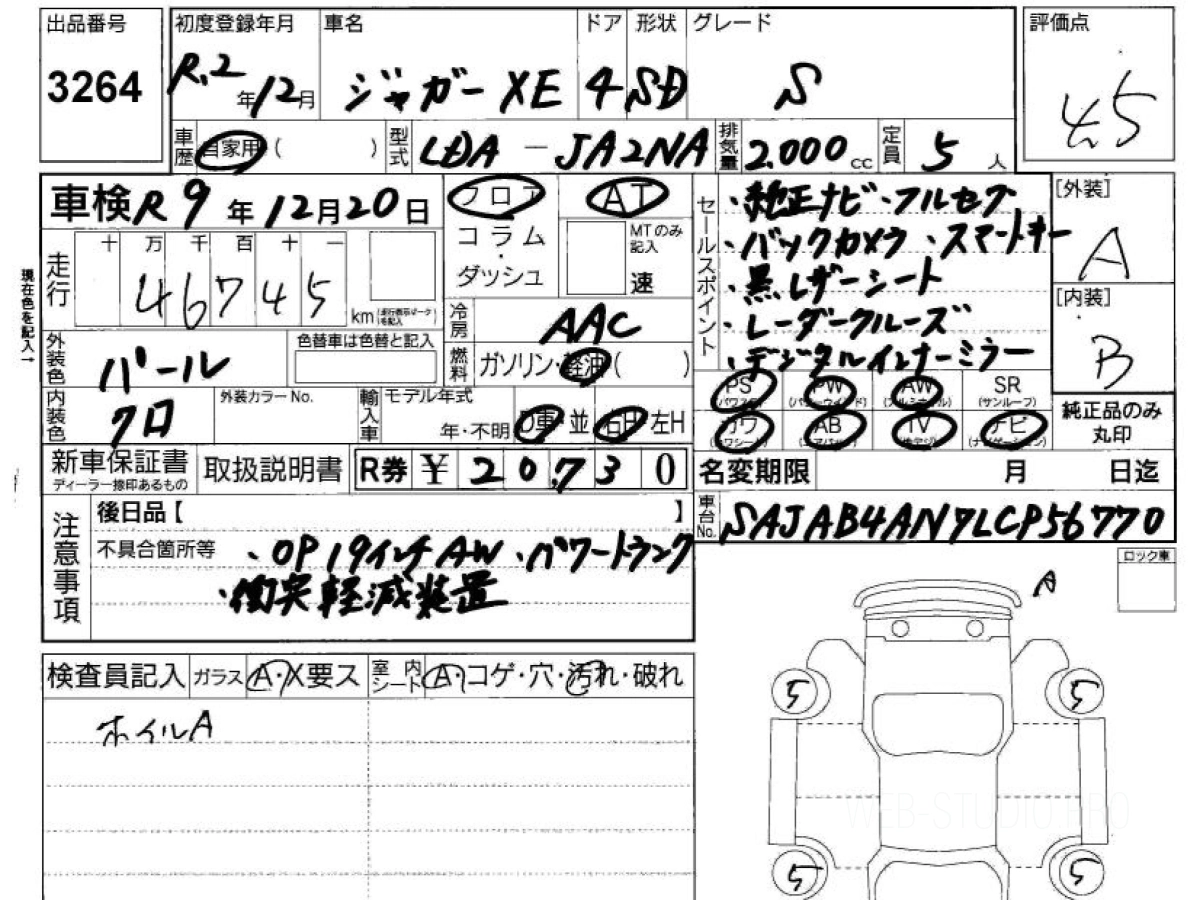 出品番号
3264
初度登録年月
R.2年12月
車名
ジャガー XE
ドア
4
形状
SD
グレード
S
評価点
4.5
車歴
自家用 ( )
型式
LDA - JA2NA
排気量
2.000 cc
定員
5 人
車検 R9年12月20日
フロア
コラム・
ダッシュ
AT
MTのみ
記入
速
セールスポイント
・純正ナビ・フルセグ
・バックカメラ・スマートキー
・黒レザーシート
・レーダークルーズ
・デジタルインナーミラー
[外装]
A
[内装]
B
現在色を記入→
走行
十 万 千 百 十 一
4 6 7 4 5
km
冷房
AAC
燃料
ガソリン・軽油 ( )
外装色
パール
色替車は色替と記入
内装色
クロ
外装カラー No.
輸入車
モデル年式
年・不明
D車 並 右H 左H
PS
(パワステ)
PW
(パワーウィンド)
AW
(アルミホイル)
SR
(サンルーフ)
カワ
(カワシート)
AB
(エアバック)
TV
ナビ
(ナビゲーション)
純正品のみ
丸印
新車保証書
ディーラー捺印あるもの
取扱説明書
R券 ¥ 20,730
名変期限
月
日迄
注意事項
後日品【 】
不具合箇所等
・OP19インチAW・パワートランク
・衝突軽減装置
車台No.
SAJAB4AN7LCP56770
ロック車
A
検査員記入
ガラス
A・X要ス
室内
シート
A・コゲ・穴・汚れ・破れ
ホイルA
5
5
5
5
WEB-STUDIO.PRO